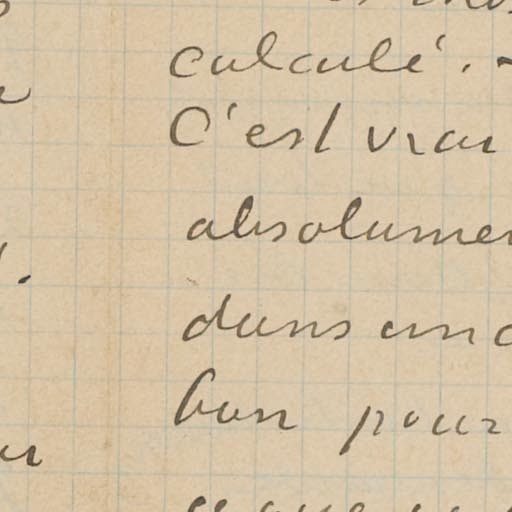 calculé. -
C'est vrai
absolumen
dans un
bon pour